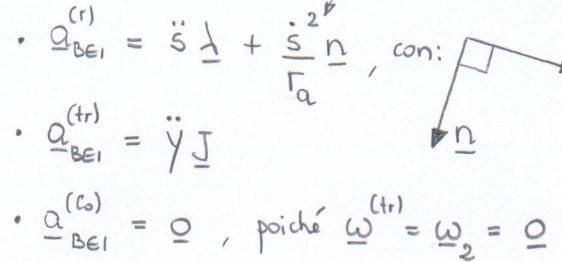 • a_{B∈1}^{(r)} = s̈ λ + ṡ²/r_a n , con:
n
• a_{B∈1}^{(tr)} = ÿ J
• a_{B∈1}^{(Co)} = 0 , poiché ω^{(tr)} = ω_2 = 0